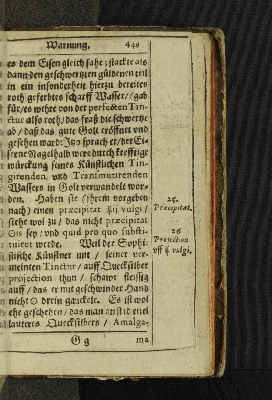 Warnung. 449
es dem Eisen gleich sahe; stackte als
dann den geschwertzten güldenen teil
in ein insonderheit hierzu bereites
roth geferbtes scharff Wasser / (gab
für / es wehre von der perfecten Tin-
ctur also roth / das fraß die schwertze
ab / daß das gute Golt eröffnet und
gesehen ward: Itzo sprach er / der Ei-
serne Nagelhalb were durch kreffrige
würckung seines Künstlichen Tin-
girenden und Transmutirenden
Wassers in Golt verwandelt wor-
den. Haben sie (ihrem vorgeben
nach) einen præcipitat ☿ij vulgi /
siehet wol zu / das nicht præcipitat
☉is sey / und quid pro quo substi-
tuiret werde. Weil der Sophi-
stische Künstner mit / seiner ver-
meinten Tinctur / auff Quecksilber
projection thun / schawt fleissig
auff / das er mit geschwinder Hand
nicht ☉ drein gauckele. Es ist wol
ehe geschehen / das man anstad eitel
lauteres Quecksilbers / Amalga-
G g ma
25.
Præcipitat.
26
Projection
uff ☿ vulgi.